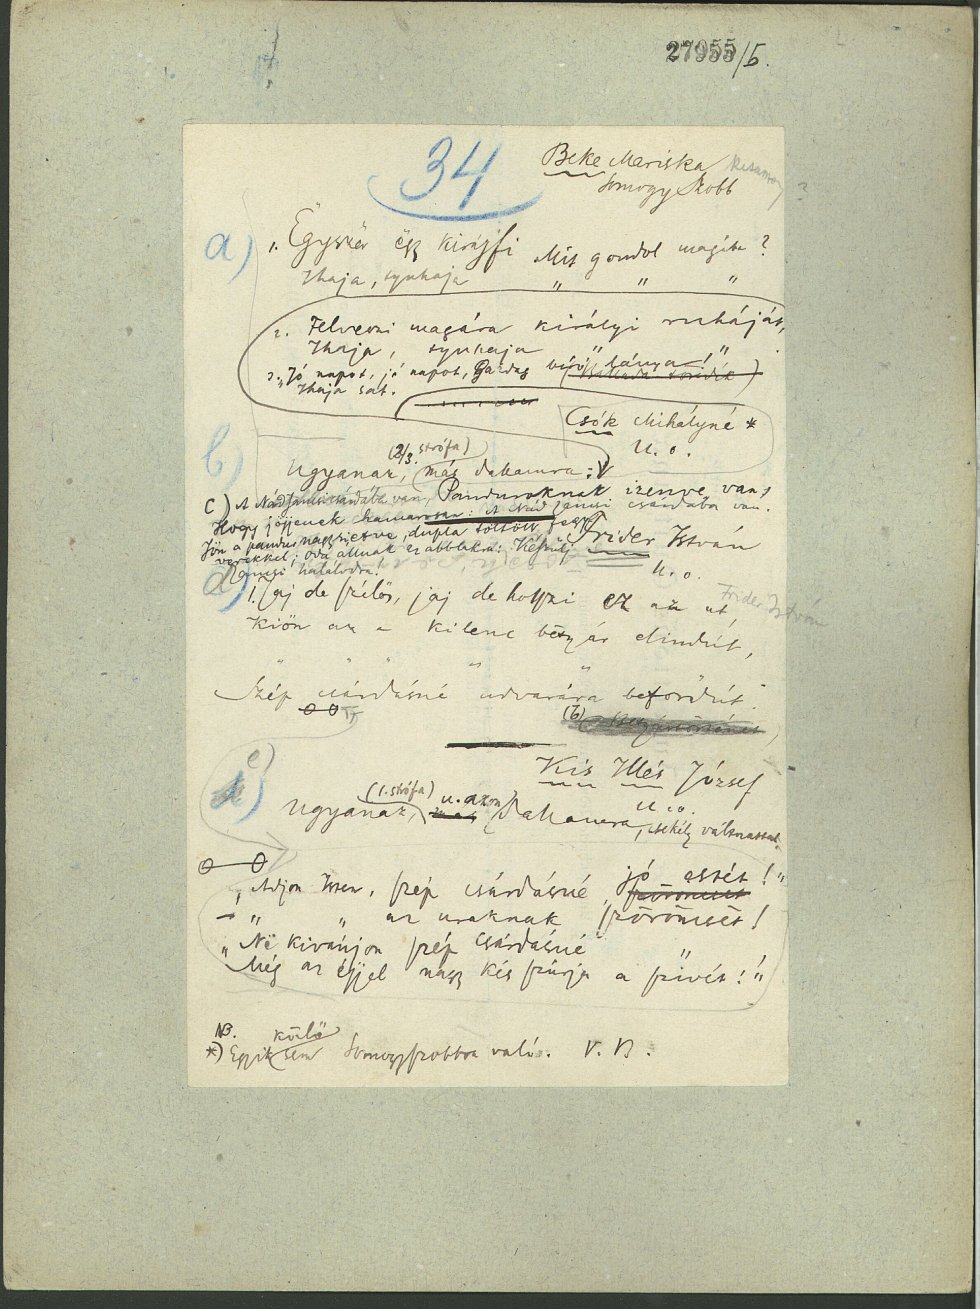 27955/5.
34
Beke Mariska
Somogy Szobb
a) 1. Egyszër ëgy királyfi Mit gondol magába?
Ihaja, tyuhaja " " "
2. Felveszi magára királyi ruháját,
Ihaja, tyuhaja " "
3. "Jó napot, jó napot, gazdag biró lánya!"
Ihaja sat.
Csók Mihályné *
U. o.
b) (2/3. strófa)
Ugyanaz, más dallamra:
c) A Nád Jancsi csárdába van, Panduroknak izenve van,
Hogy jöjjenek hamarosan: A Nád Jancsi csárdába van.
Jön a pandur nagysietve, dupla töltött fegy-
verekkel; oda állnak az ablakra: Készülj
Jancsi halálodra!
Frider István
U. o.
Frider István
d) 1. Jaj de széles, jaj de hosszi ez az ut
Kiön az a kilenc betyár elindút,
" " " " "
Szép csárdásné udvarára befordút.
Kis Illés József
U. o.
e) (1. strófa) u. azon
Ugyanaz, dallamra, csekély változással.
"Adjon Isten, szép csárdásné jó estét!"
— " " az uraknak szöröncsét!
"Në kivánjon szép csárdásné "
Még az éjjel nagy kés szúrja a szivét!"
NB. közlő
*) Egyik sem Somogyszobbra való. V. B.